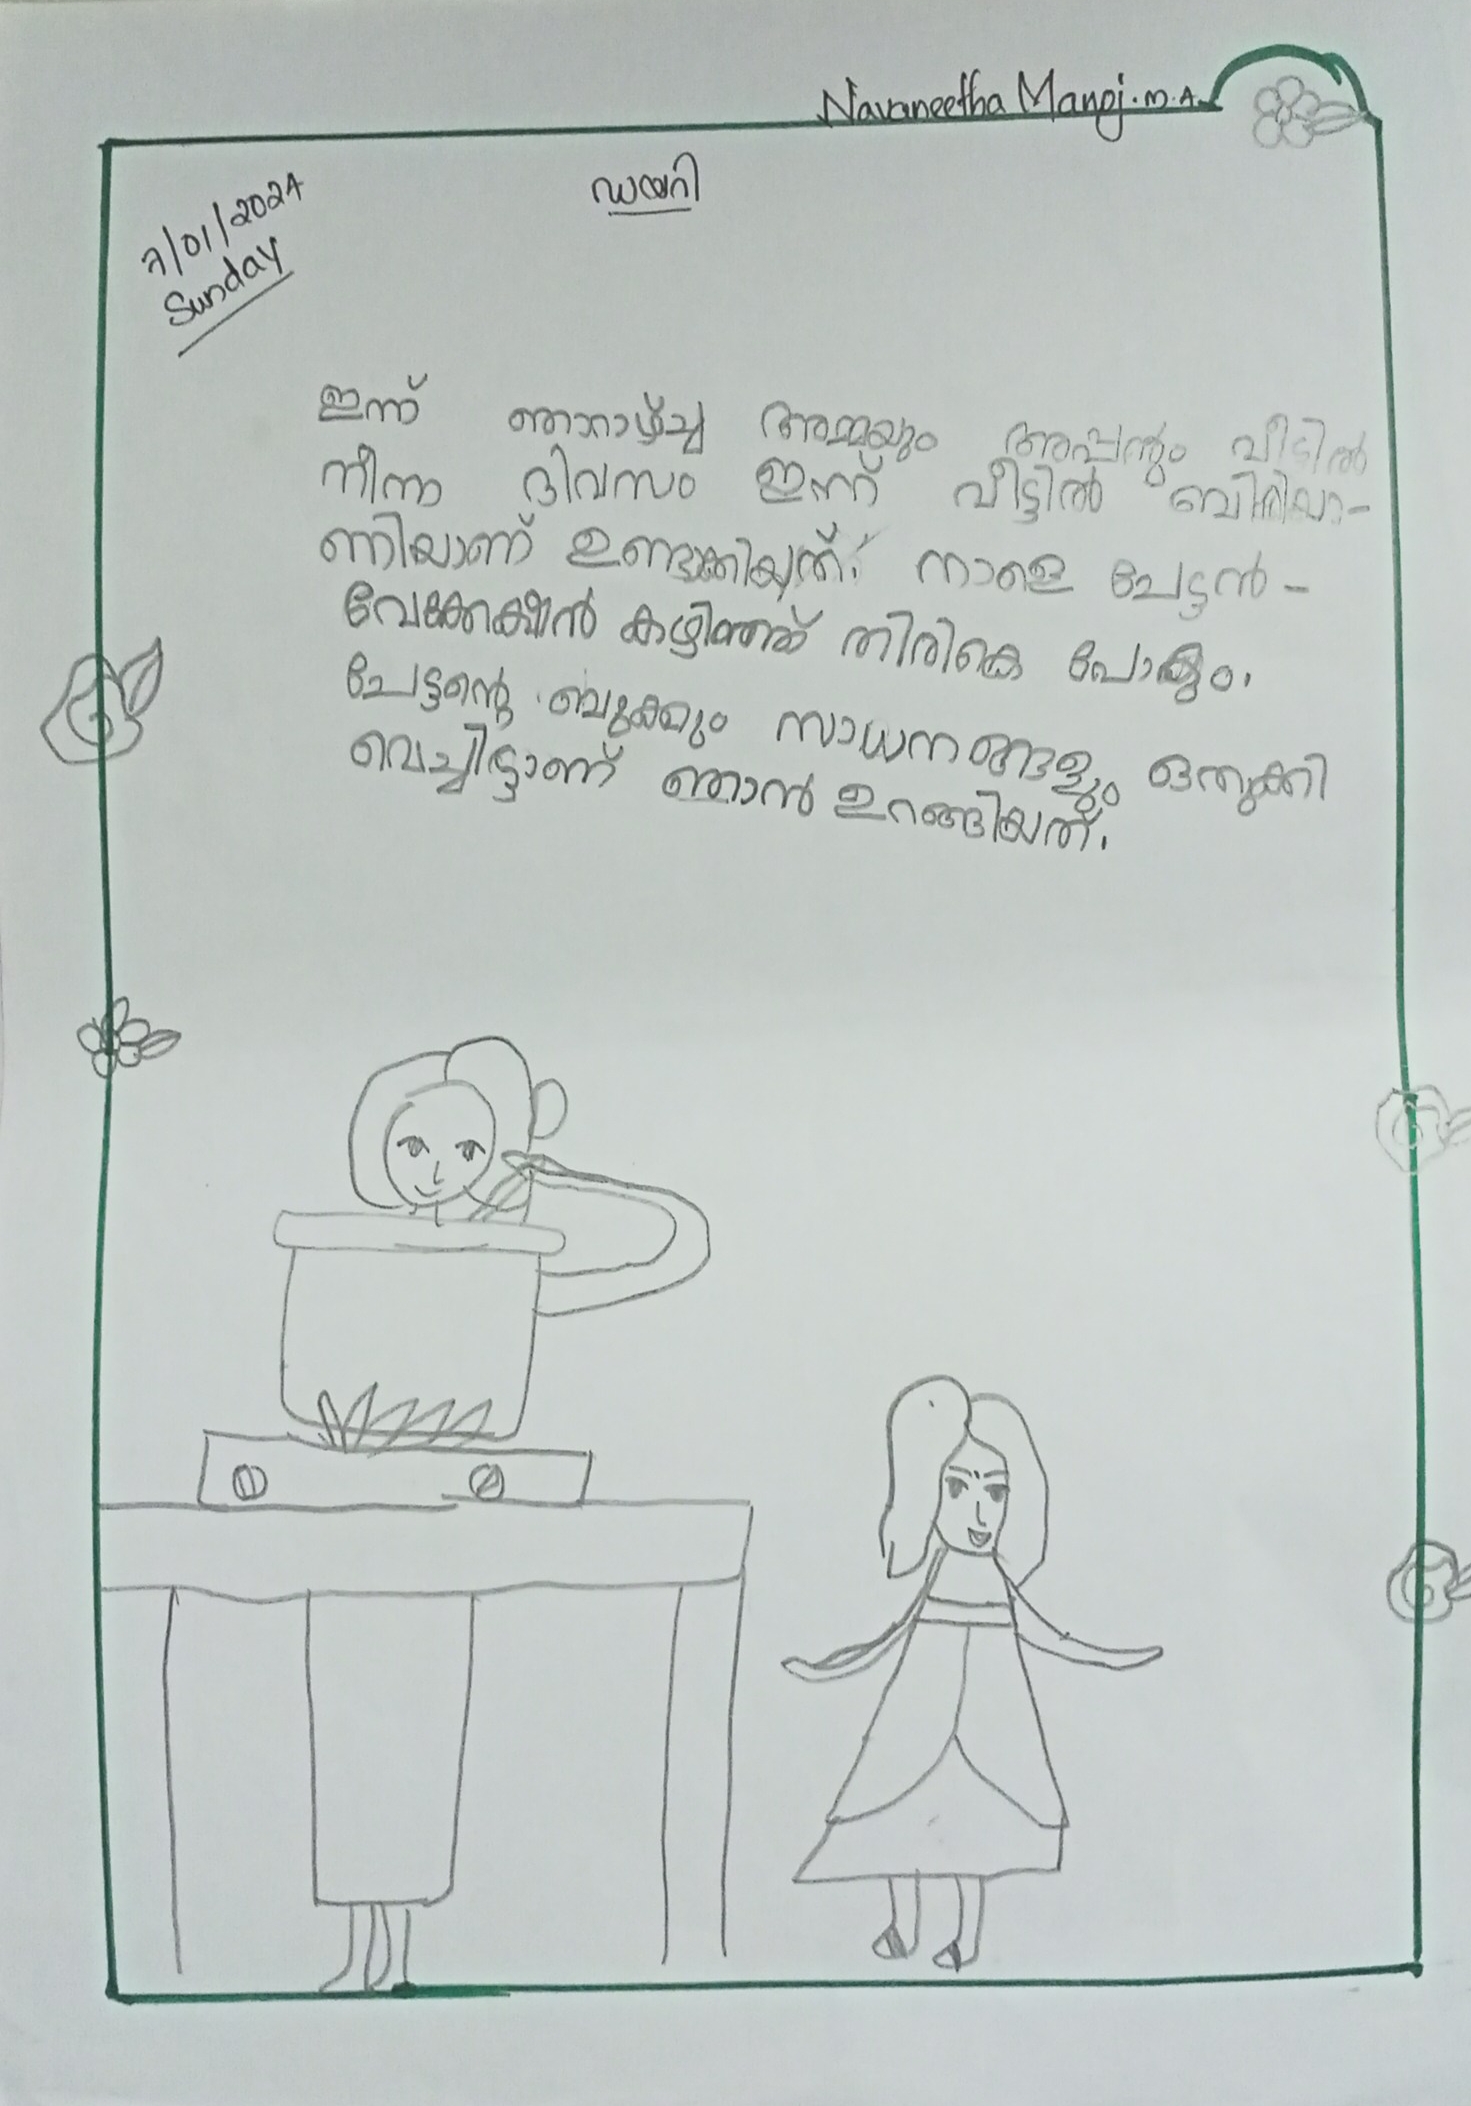 Navaneetha Manoj.M.A
ഡയറി
7/01/2024
Sunday
ഇന്ന് ഞായാഴ്ച്ച അമ്മയും അപ്പനും വീട്ടിൽ
നീന്ന ദിവസം ഇന്ന് വീട്ടിൽ ബിരിയാ-
ണിയാണ് ഉണ്ടാക്കിയത്. നാളെ ചേട്ടൻ-
വേക്കേക്ഷൻ കഴിഞ്ഞ് തിരികെ പോകും.
ചേട്ടന്റെ ബുക്കും സാധനങ്ങളും ഒതുക്കി
വെച്ചിട്ടാണ് ഞാൻ ഉറങ്ങിയത്.